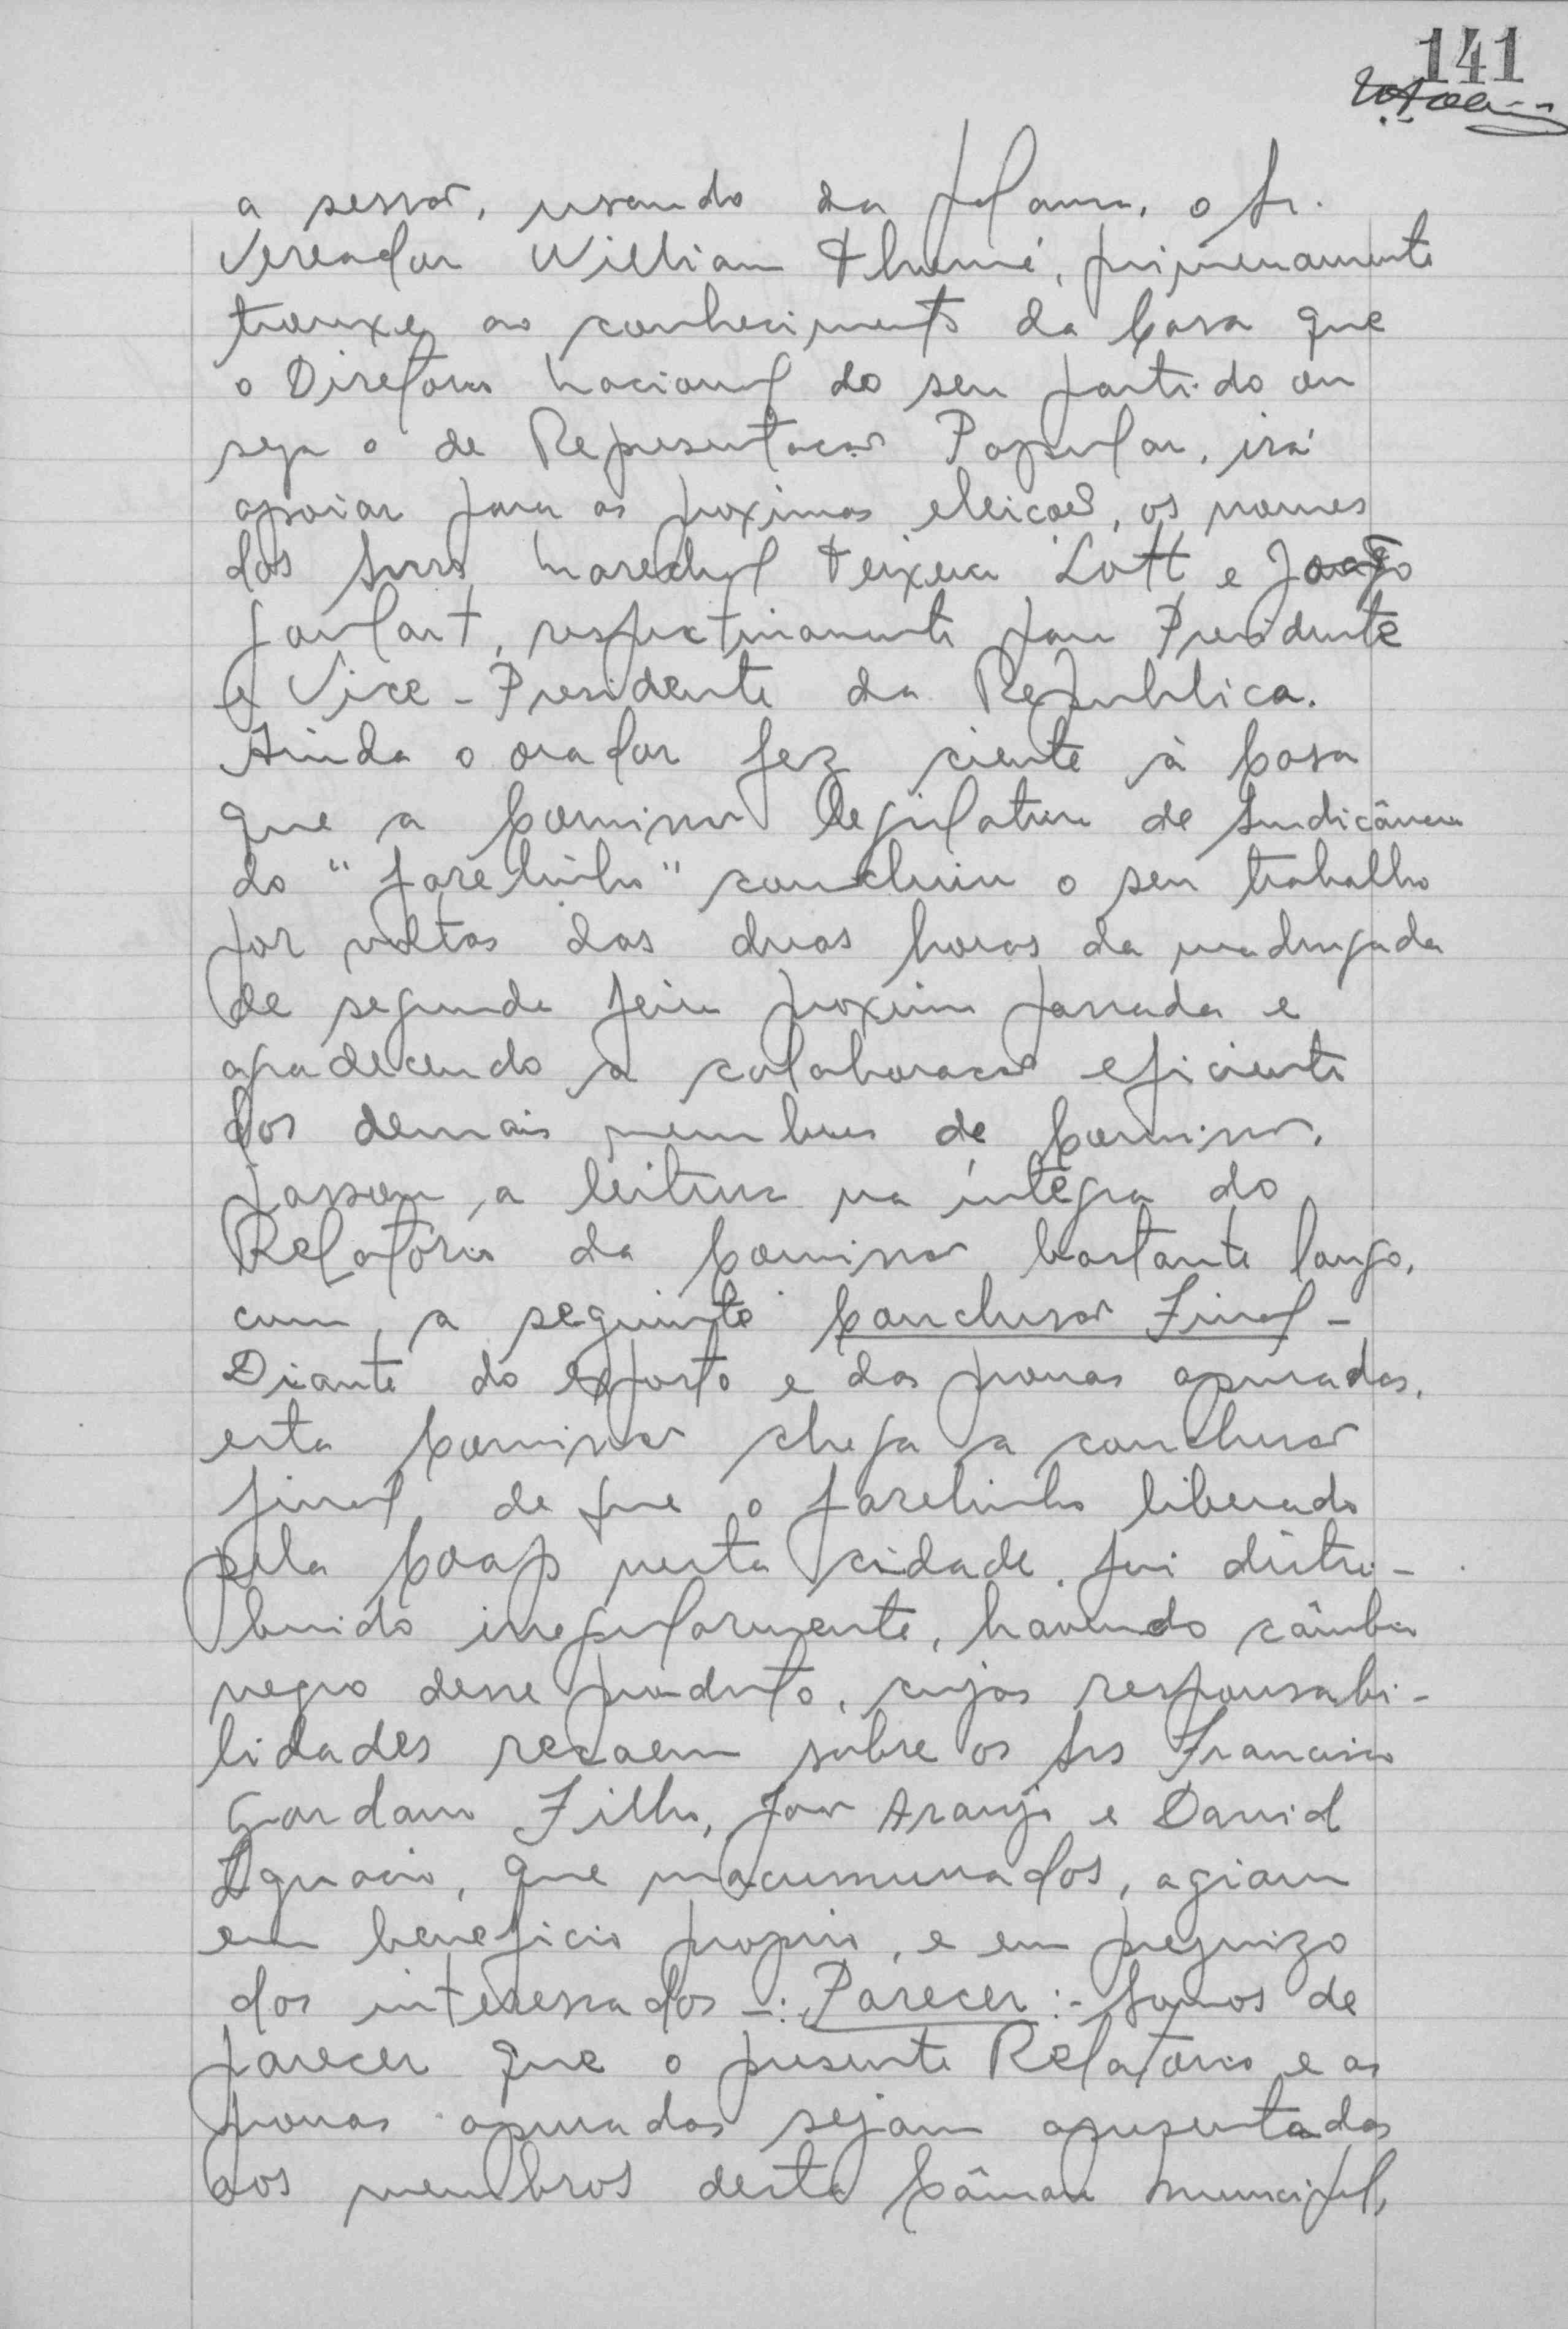 141
a sessão, usando da palavra, o Sr.
Vereador Willian Thomé, primeiramente
trouxe ao conhecimento da Casa que
o Diretorio Nacional do seu partido ou
seja o de Representação Popular, irá
apoiar para as proximas eleições, os nomes
dos Snrs Marechal Teixeira Lott e João
Goulart, respectivamente para Presidente
e Vice-Presidente da Republica.
Ainda o orador fez ciente à Casa
que a Comissão Legislativa de Sindicância
do "farelinho" concluiu o seu trabalho
por voltas das duas horas da madrugada
de segunda feira proxima passada e
agradecendo a colaboração eficiente
dos demais membros de Comissão,
passou a leitura na íntegra do
Relatório da Comissão bastante longo,
com a seguinte Conclusão Final -
Diante do exposto e das provas apuradas,
esta Comissão chega a conclusão
final de que o farelinho liberado
pela Coap nesta cidade, foi distri-
buido irregularmente, havendo câmbio
negro desse produto, cujas responsabi-
lidades recaem sobre os Srs Francisco
Gordano Filho, João Araujo e David
Ignacio, que macumunados, agiam
em beneficio proprio, e em prejuizo
dos interessados -: Parecer :- Somos de
parecer que o presente Relatorio e as
provas apuradas sejam apresentadas
aos membros desta Câmara Municipal,